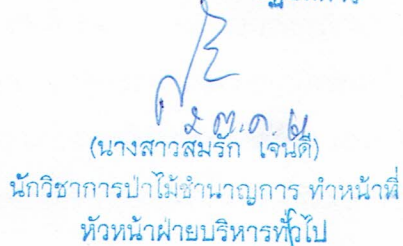 ๒ ต.ค. ๖๒
(นางสาวสมรัก เจนดี)
นักวิชาการป่าไม้ชำนาญการ ทำหน้าที่
หัวหน้าฝ่ายบริหารทั่วไป